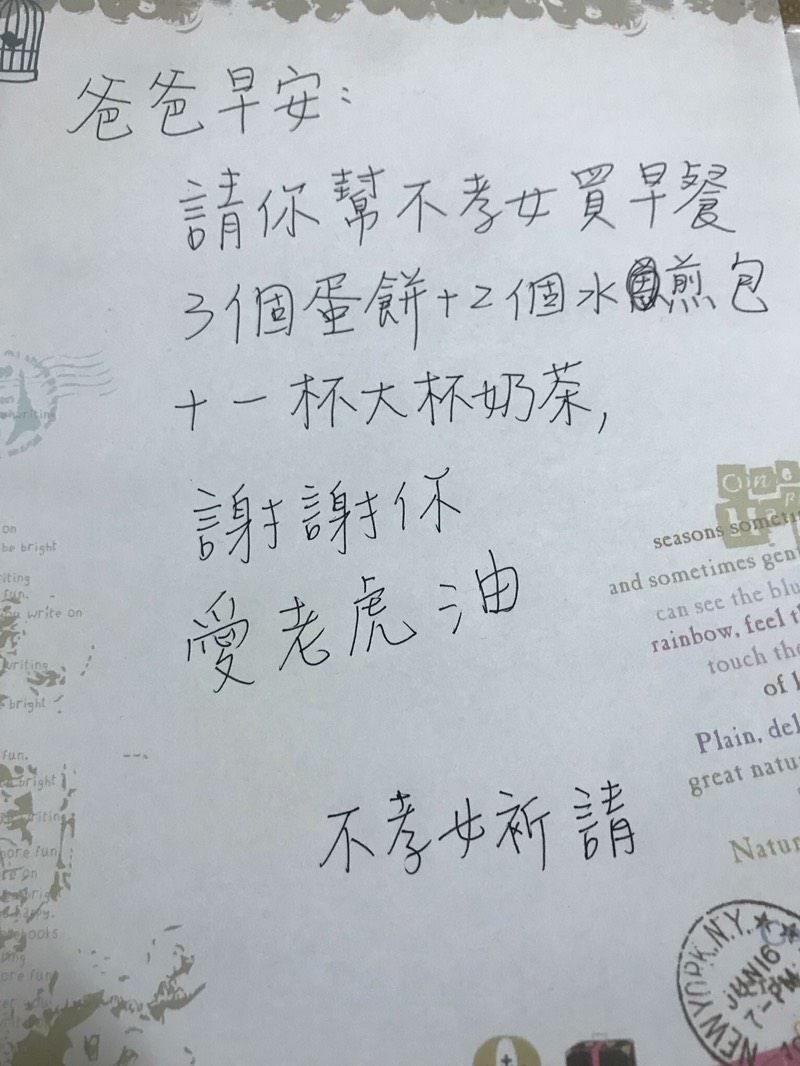 爸爸早安：
請你幫不孝女買早餐
3個蛋餅+2個水煎包
+一杯大杯奶茶,
謝謝你
愛老虎油
不孝女祈請
on
be bright
writing
fun.
you write on
writing
bright
fun.
bright
writing
more fun
books
One
seasons someti
and sometimes gent
can see the blu
rainbow, feel th
touch the
of l
Plain, del
great natu
Natur
NEW YORK, N.Y.
JUN 16
7-PM